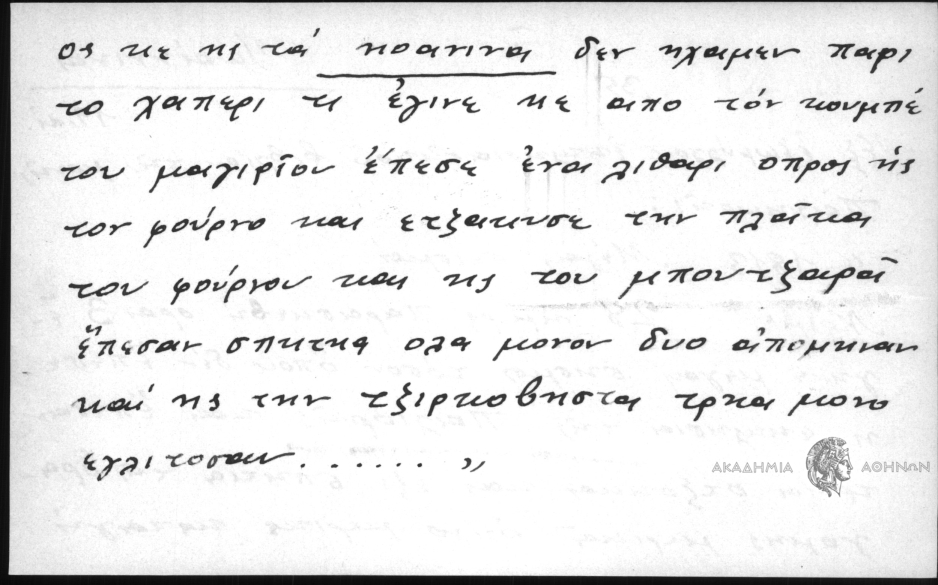 ος κε ης τά ηοανινα δεν ηχαμεν παρι
το χαπερι τι έγινε κε απο τόν κουμπέ
του μαγιρίου έπεσε ένα λιθαρι οπρος ής
τον φούρνο και ετζακισε την πλάκα
του φούρνου και ης του μπουτζαρά
έπεσαν σπητηα ολα μονον δυο απομηναν
καί ης την τζιρκοβηστα τρηα μονο
εγλιτοσαν....... „
ΑΚΑΔΗΜΙΑ ΑΘΗΝΩΝ